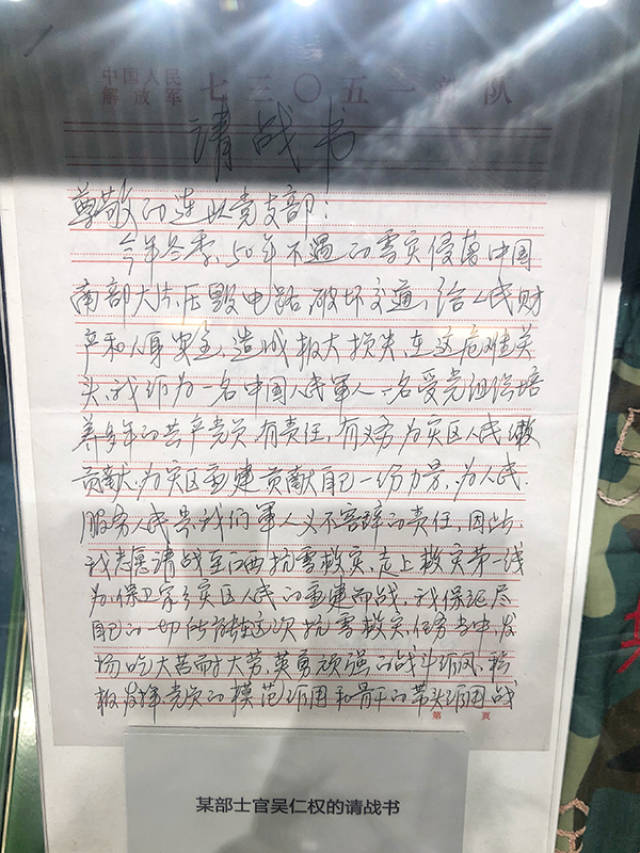 中国人民
解放军 七三〇五一部队
请战书
尊敬的连队党支部：
今年冬季、50年不遇的雪灾侵袭中国
南部大片、压毁电路、破坏交通、给人民财
产和人身安全、造成极大损失、在这危难关
头、我作为一名中国人民軍人、一名受党组织培
养多年的共产党员、有责任、有义务为灾区人民做
贡献、为灾区重建贡献自己一份力量、为人民
服务人民是我们軍人义不容辞的责任、因此
我志愿请战至江西抗雪救灾、走上救灾第一线
为保卫家乡灾区人民的重建而战、我保证尽
自己的一切能力在这次抗雪救灾、任务当中、发
扬吃大苦耐大劳、英勇顽强的战斗作风、积
极发挥党员的模范作用和骨干的带头作用战
第 页
某部士官吴仁权的请战书